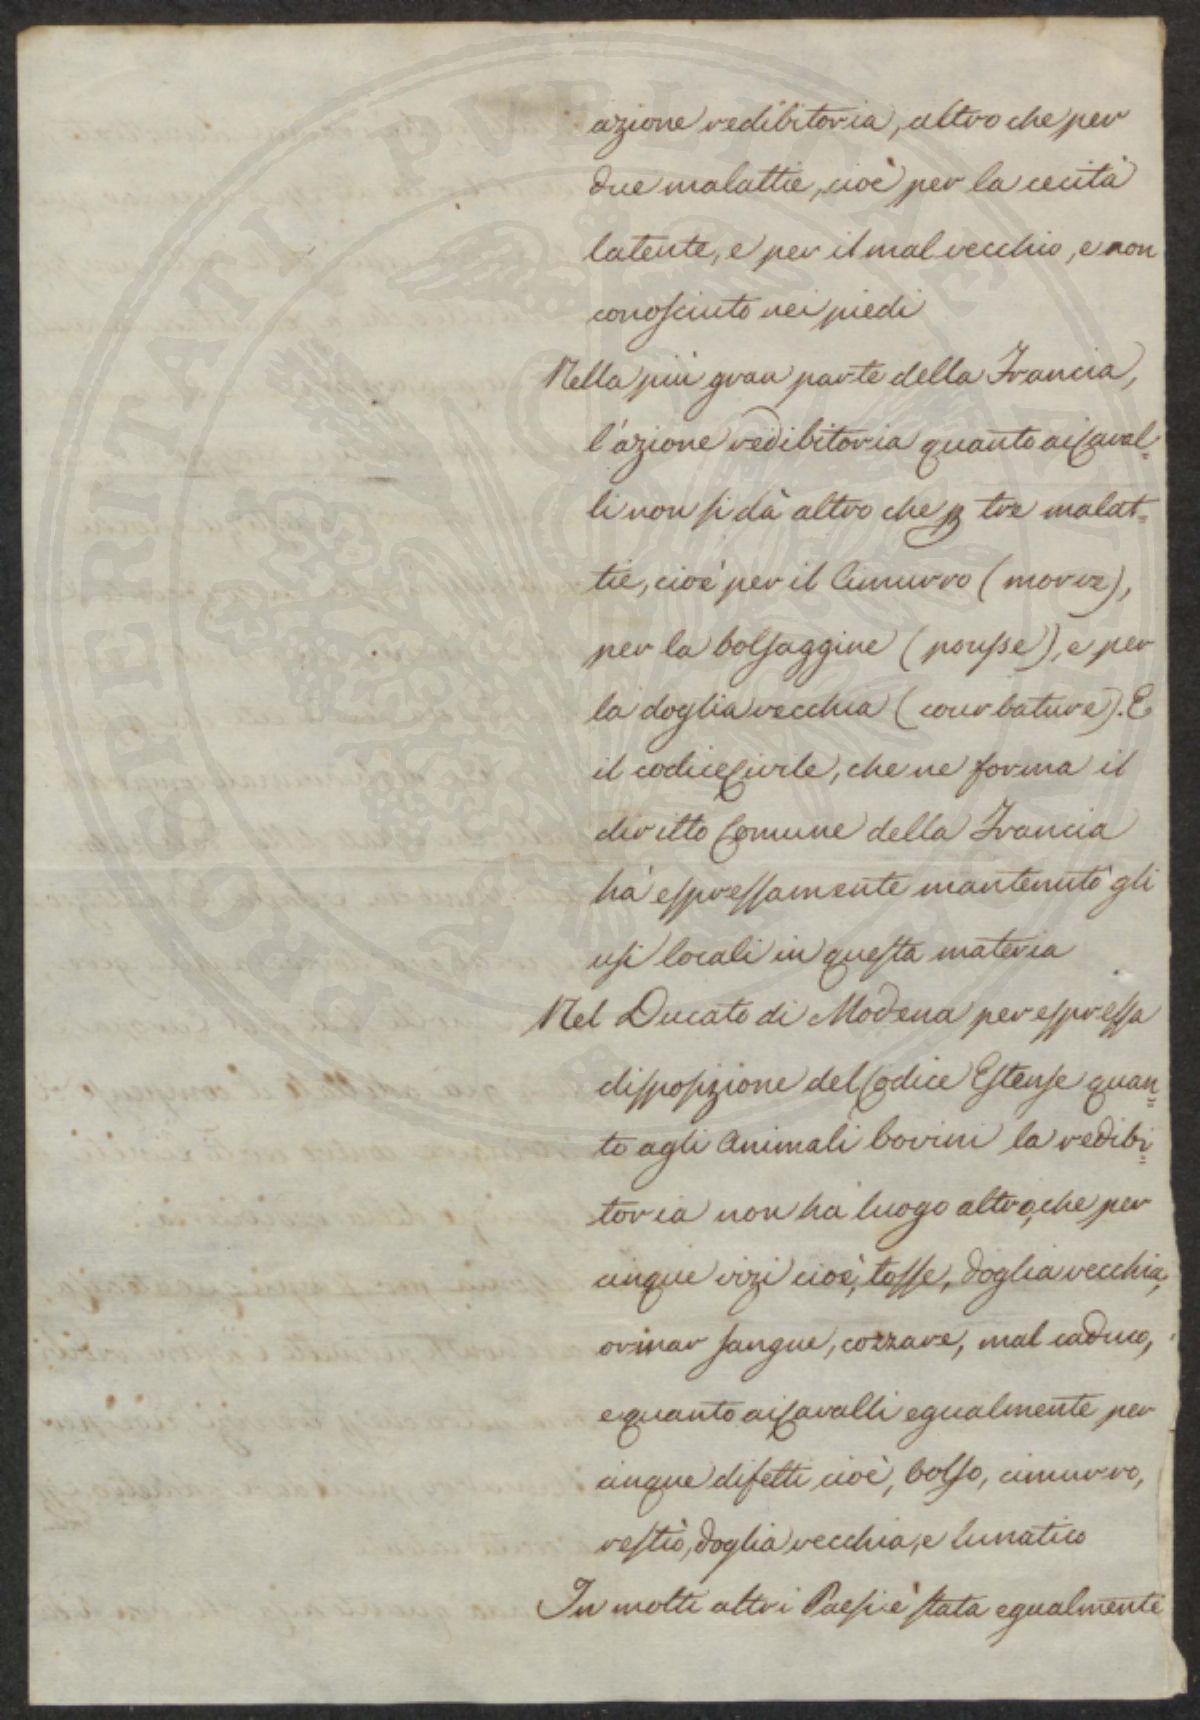 azione redibitoria, altro che per
due malattie, cioè per la cecità
latente, e per il mal vecchio, e non
conosciuto nei piedi
Nella più gran parte della Francia,
l'azione redibitoria quanto ai Caval-
li non si dà altro che p tre malat-
tie, cioè per il Cimurro (morve),
per la bolsaggine (pousse), e per
la doglia vecchia (courbature). E
il codice Civile, che ne forma il
diritto Comune della Francia
hà espressamente mantenuto gli
usi locali in questa materia
Nel Ducato di Modena per espressa
disposizione del Codice Estense quan-
to agli Animali bovini la redibi-
toria non ha luogo altro, che per
cinque vizi cioè, tosse, doglia vecchia,
orinar sangue, cozzare, mal caduco,
e quanto ai Cavalli egualmente per
cinque difetti cioè, bolso, cimurro,
restìo, doglia vecchia, e lunatico
In molti altri Paesi è stata egualmente
PROSPERITATI PVBLICAE